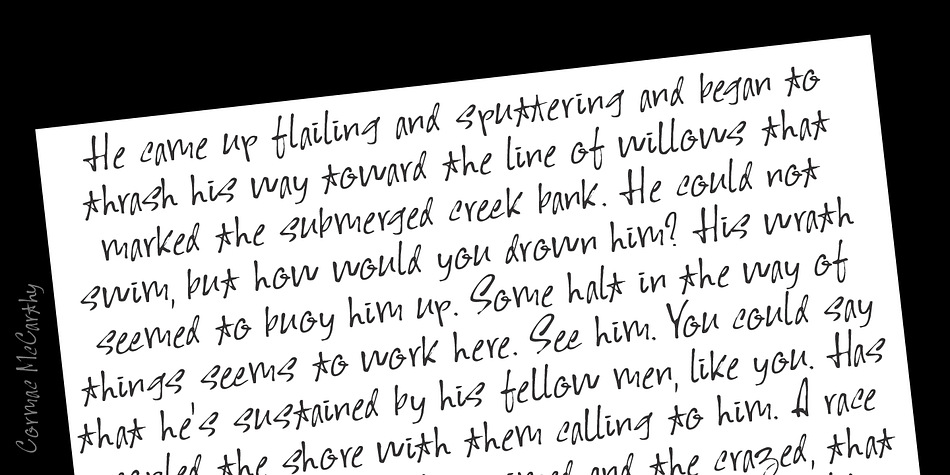 He came up flailing and sputtering and began to
thrash his way toward the line of willows that
marked the submerged creek bank. He could not
swim, but how would you drown him? His wrath
seemed to buoy him up. Some halt in the way of
things seems to work here. See him. You could say
that he's sustained by his fellow men, like you. Has
the shore with them calling to him. A race
and the crazed, that
Cormac McCarthy